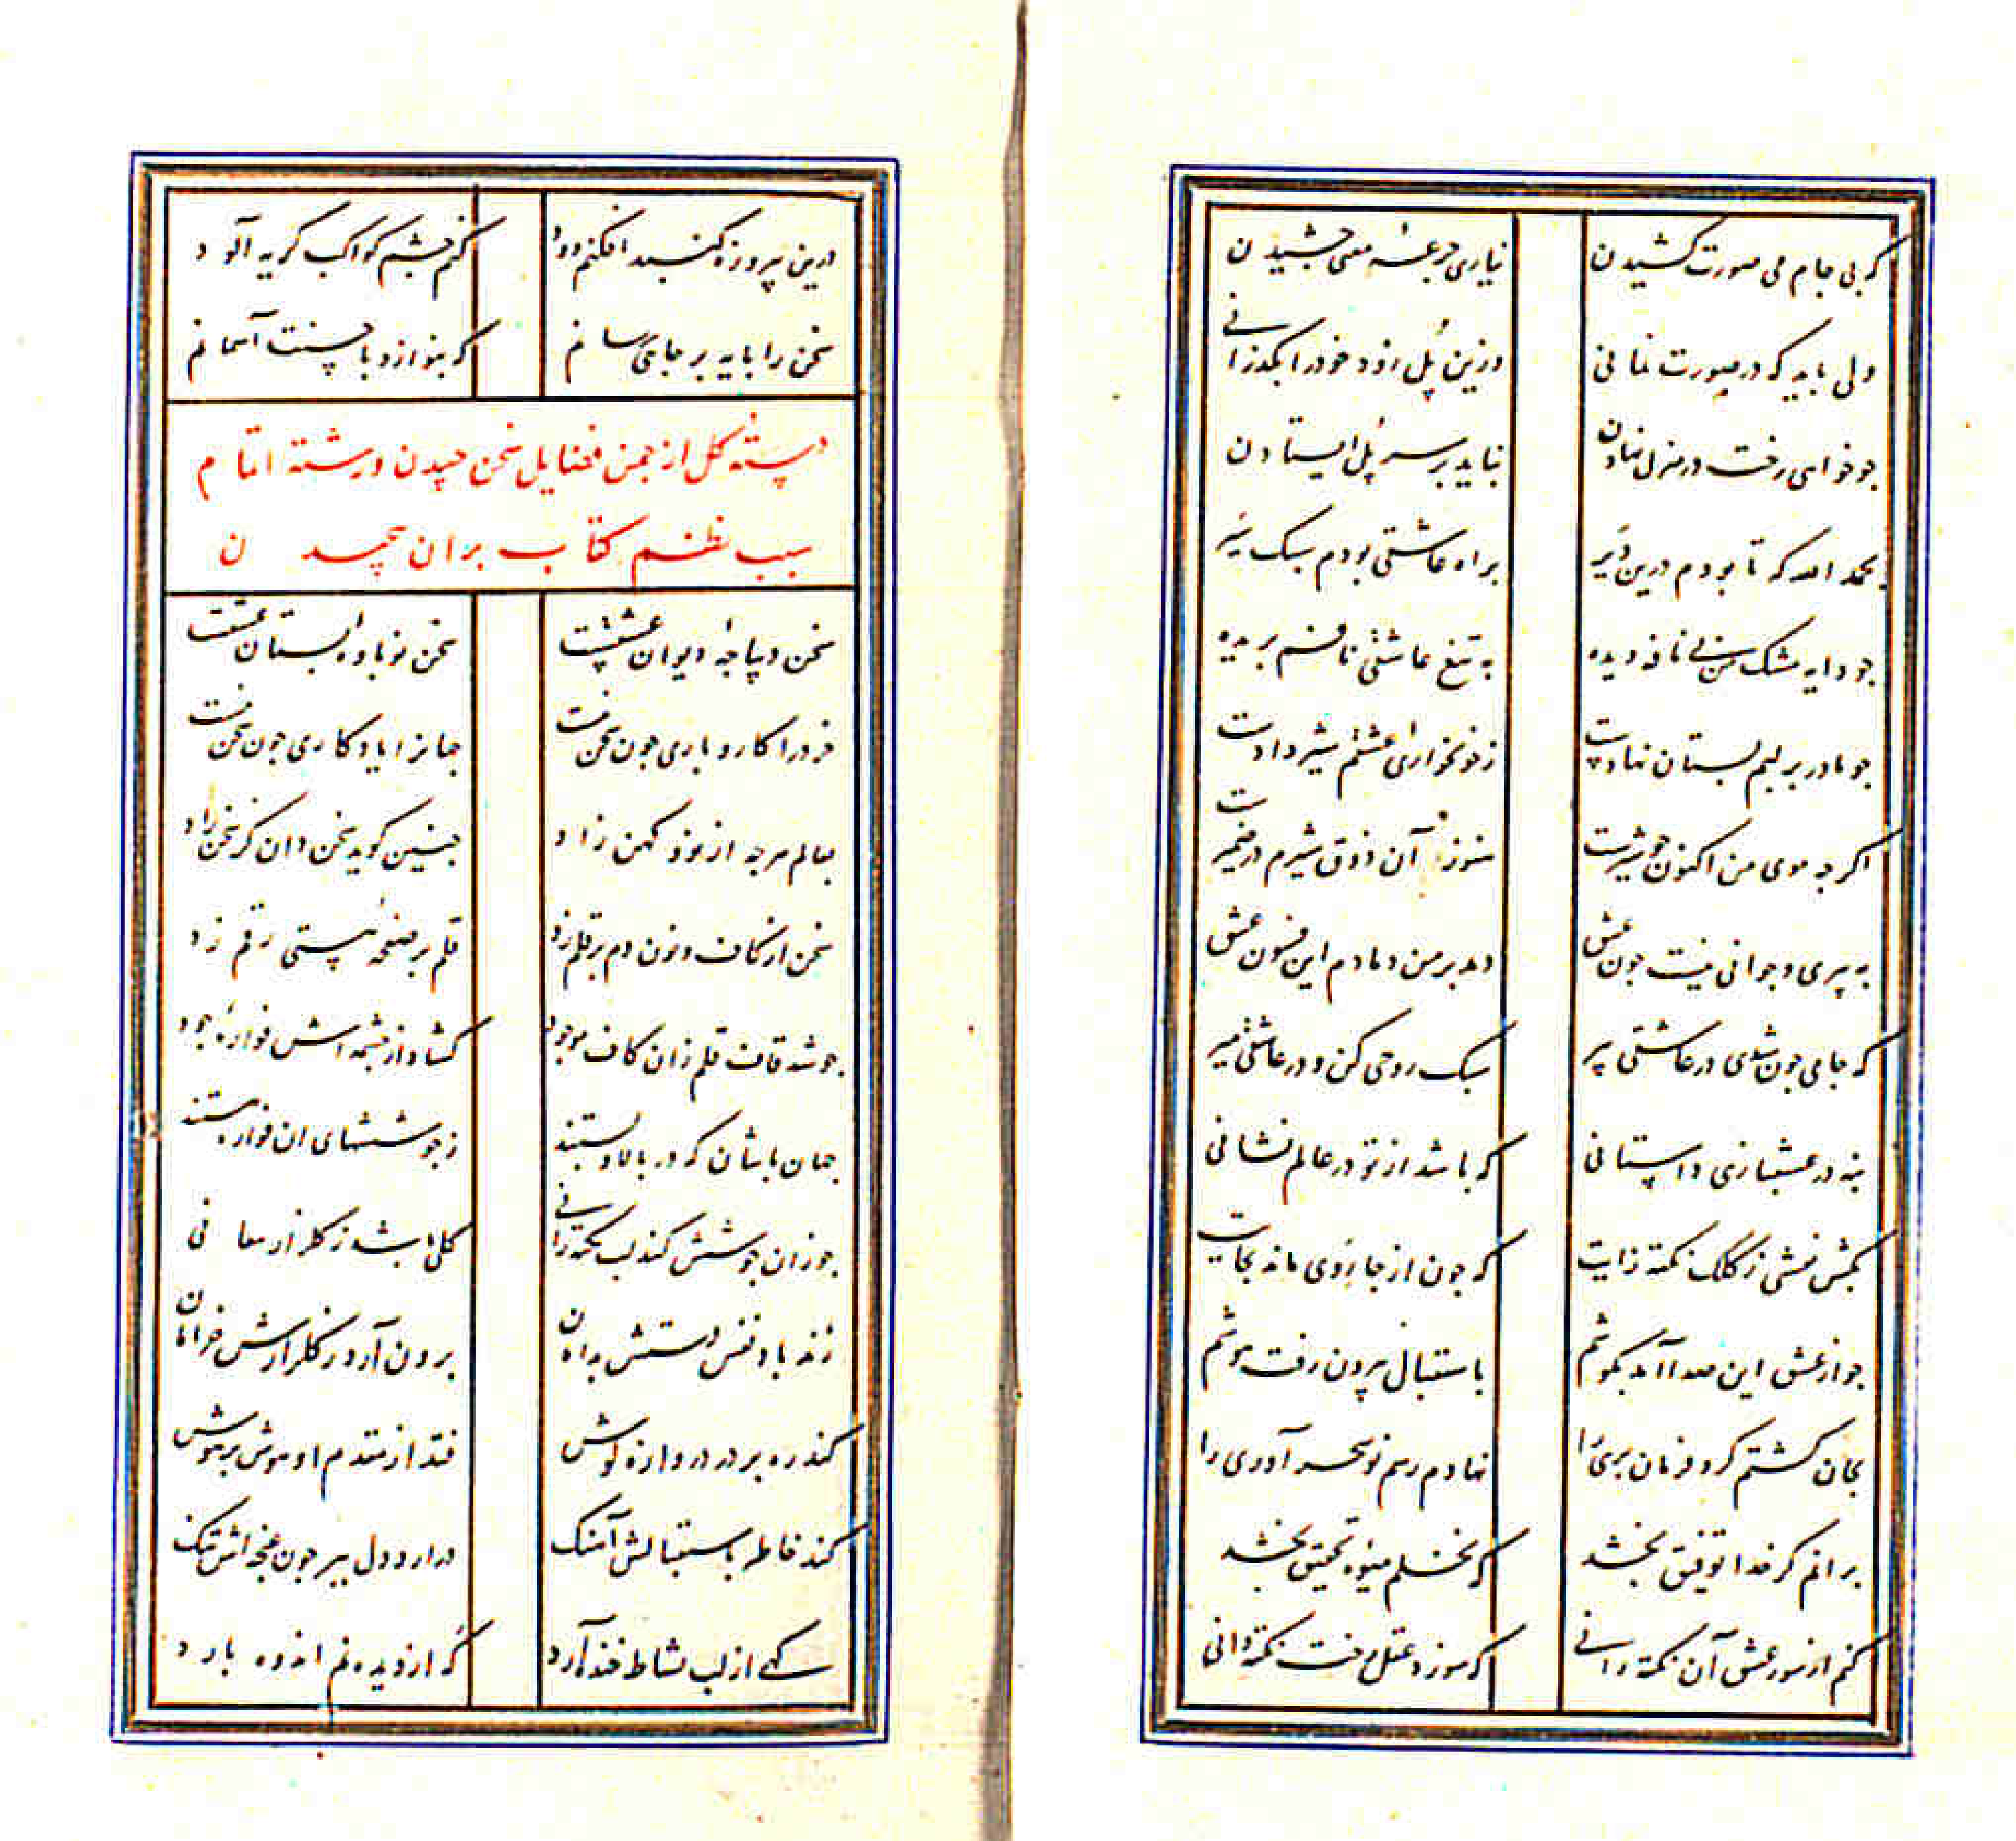 که بی جام می صورت کشیدن
نیاری جرعهٔ معنی چشیدن
ولی باید که در صورت نمانی
وزین پل زود خود را بگذرانی
چو خواهی رخت در منزل نهادن
نباید بر سر پل ایستادن
بحمد الله که تا بودم درین دیر
براه عاشقی بودم سبک سیر
چو دایه مشک من بی نافه دیده
به تیغ عاشقی نافم بریده
چو مادر بر لبم پستان نهادست
ز خونخواری عشقم شیر دادست
اگر چه موی من اکنون چو شیرست
هنوز آن ذوق شیرم در ضمیرست
به پیری و جوانی نیست چون عشق
دمد بر من دمادم این فسون عشق
که جامی چون شدی در عاشقی پیر
سبک روحی کن و در عاشقی میر
بنه در عشقبازی داستانی
که باشد از تو در عالم نشانی
بکش نقشی ز کلک نکته زایت
که چون از جا روی ماند بجایت
چو از عشق این صدا آمد بگوشم
باستقبال بیرون رفت هوشم
بجان گشتم گرو فرمان بری را
نهادم رسم نو سحر آوری را
برانم گر خدا توفیق بخشد
که نخلم میوهٔ تحقیق بخشد
کنم از سوز عشق آن نکته رانی
که سوزد عقل رخت نکته دانی
درین پیروزه گنبد افکنم دود
کنم چشم کواکب گریه آلود
سخن را پایه بر جایی رسانم
که بنوازد باحسنت آسمانم
دستهٔ گل از چمن فضایل سخن چیدن و رشتهٔ اتمام
سبب نظم کتاب بران پیچیدن
سخن دیباجهٔ دیوان عشقست
سخن نوباوهٔ بستان عشقست
خرد را کار و باری چون سخن نیست
جهانرا یادگاری چون سخن نیست
بعالم هر چه از نو و کهن زاد
چنین گوید سخن دان کز سخن زاد
سخن از کاف و نون دم بر قلم زد
قلم بر صفحهٔ هستی رقم زد
چو شد قاف قلم زان کاف موجود
گشاد از چشمه اش فوارهٔ جود
جهان باشان که در بالا و پستند
ز جوششهای ان فواره هستند
چو زان جوشش کند لب نکته رانی
گلی باشد ز گلزار معانی
زند باد نفس دستش بدامان
برون آرد ز گلزارش خرامان
کند ره بر در دروازهٔ گوش
فتد از مقدم او هوش بر هوش
کند خاطر باستقبالش آهنگ
درارد دل ببر چون غنچه اش تنگ
گهی از لب نشاط خنده آرد
گه از دیده نم اندوه بارد